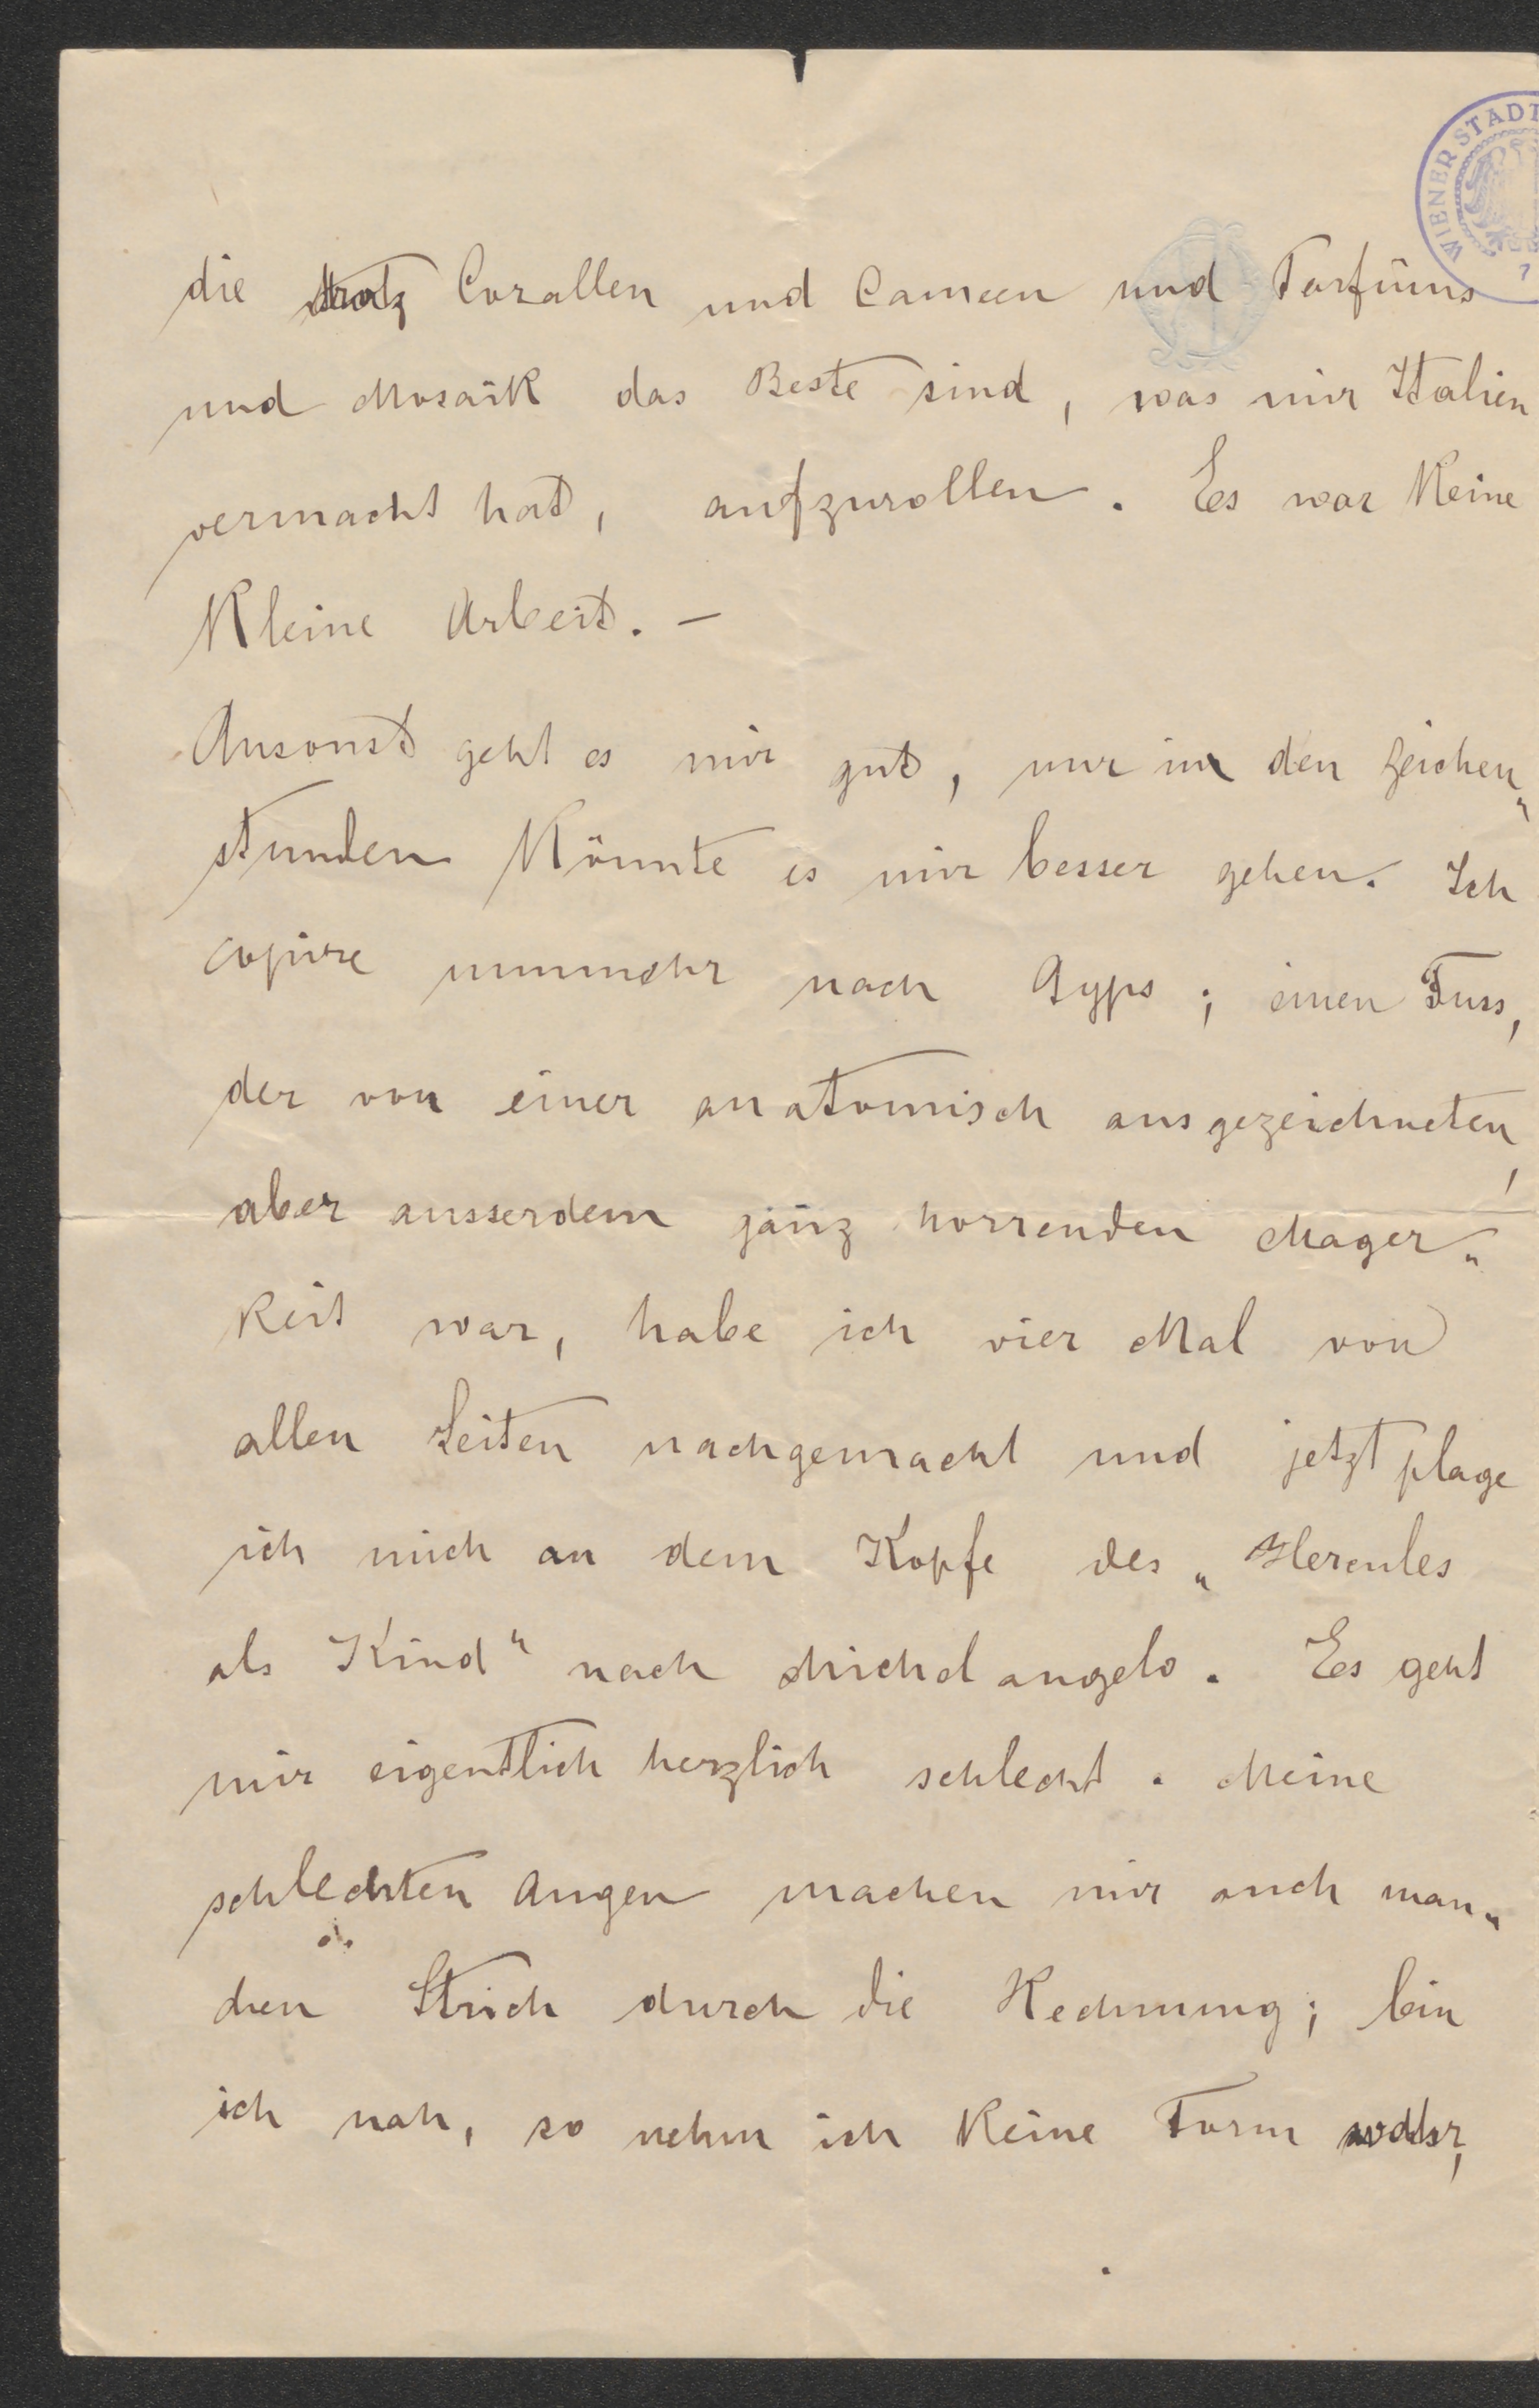 WIENER STADT
1
die trotz Corallen und Cameen und Parfüms
und Mosaik das Beste sind, was mir Italien
vermacht hat, aufzurollen. Es war keine
kleine Arbeit. –
Ansonst geht es mir gut, nur in den Zeichen„
stunden könnte es mir besser gehen. Ich
copire nunmehr nach Gyps; einen Fuss,
der von einer anatomisch ausgezeichneten,
aber ausserdem ganz horrenden Mager„
keit war, habe ich vier Mal von
allen Seiten nachgemacht und jetzt plage
ich mich an dem Kopfe des „Hercules
als Kind“ nach Michel angelo. Es geht
mir eigentlich herzlich schlecht. Meine
schlechten Augen machen mir auch man„
chen Strich durch die Rechnung; bin
ich nah, so nehm ich keine Form wahr,